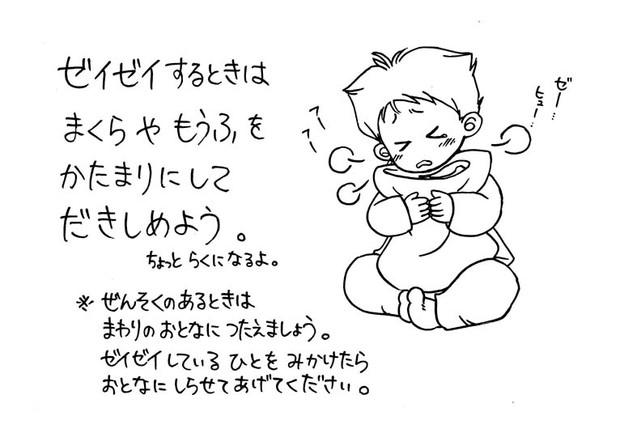 ゼイゼイするときは
まくらやもうふを
かたまりにして
だきしめよう。
ちょっとらくになるよ。
※ ぜんそくのあるときは
まわりのおとなにつたえましょう。
ゼイゼイしているひとをみかけたら
おとなにしらせてあげてください。
ゼー…
ヒュー…